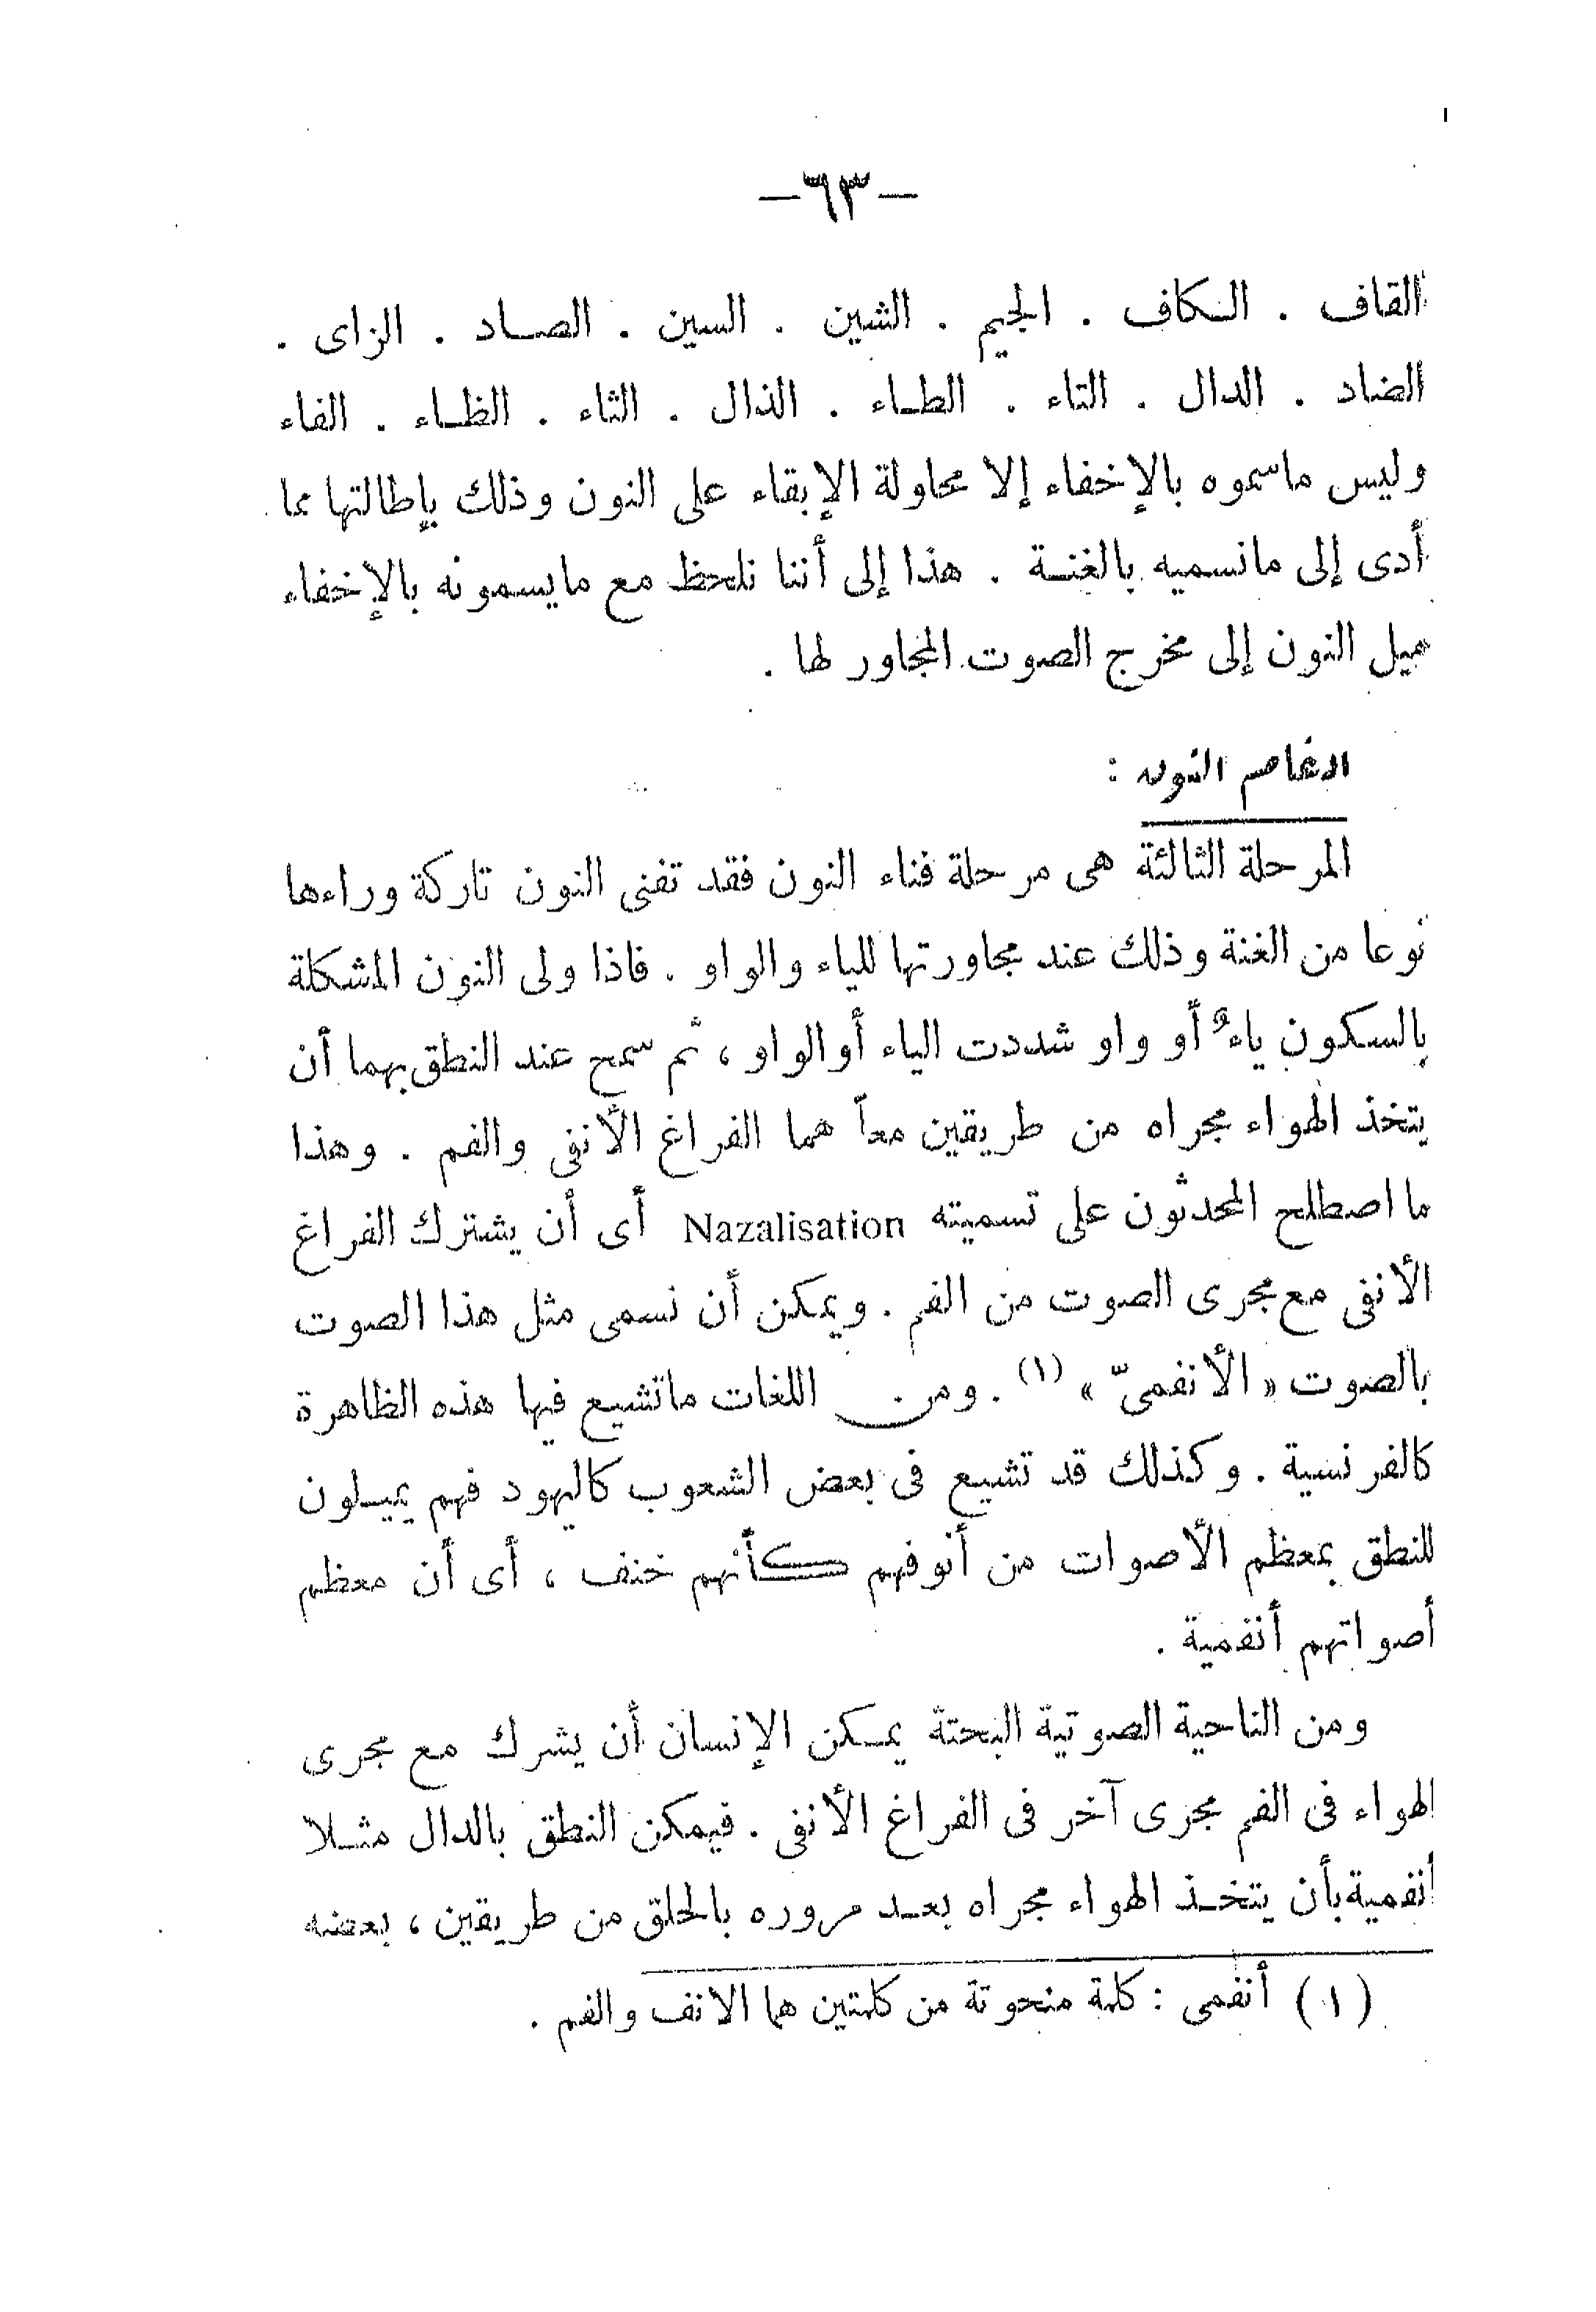 —٦٣—
القاف . الكاف . الجيم . الشين . السين . الصاد . الزاى .
الضاد . الدال . التاء . الطاء . الذال . الثاء . الظاء . الفاء
وليس ماسموه بالإخفاء إلا محاولة الإبقاء على النون وذلك بإطالتها مما
أدى إلى مانسميه بالغنة . هذا إلى أننا نلحظ مع مايسمونه بالإخفاء
ميل النون إلى مخرج الصوت المجاور لها .
ادغام النون :
المرحلة الثالثة هى مرحلة فناء النون فقد تفنى النون تاركة وراءها
نوعا من الغنة وذلك عند مجاورتها للياء والواو . فاذا ولى النون المشكلة
بالسكون ياءٌ أو واو شددت الياء أو الواو ، ثم سمح عند النطق بهما أن
يتخذ الهواء مجراه من طريقين معاً هما الفراغ الأنفى والفم . وهذا
ما اصطلح المحدثون على تسميته Nazalisation أى أن يشترك الفراغ
الأنفى مع مجرى الصوت من الفم . ويمكن أن نسمى مثل هذا الصوت
بالصوت « الأنفمىّ » (١) . ومن اللغات ماتشيع فيها هذه الظاهرة
كالفرنسية . وكذلك قد تشيع فى بعض الشعوب كاليهود فهم يميلون
للنطق بمعظم الأصوات من أنوفهم كأنهم خنف ، أى أن معظم
أصواتهم أنفمية .
ومن الناحية الصوتية البحتة يمكن الإنسان أن يشرك مع مجرى
الهواء فى الفم مجرى آخر فى الفراغ الأنفى . فيمكن النطق بالدال مثلا
أنفمية بأن يتخذ الهواء مجراه بعد مروره بالحلق من طريقين ، بعضه
(١) أنفمى : كلمة منحوتة من كلمتين هما الانف والفم .